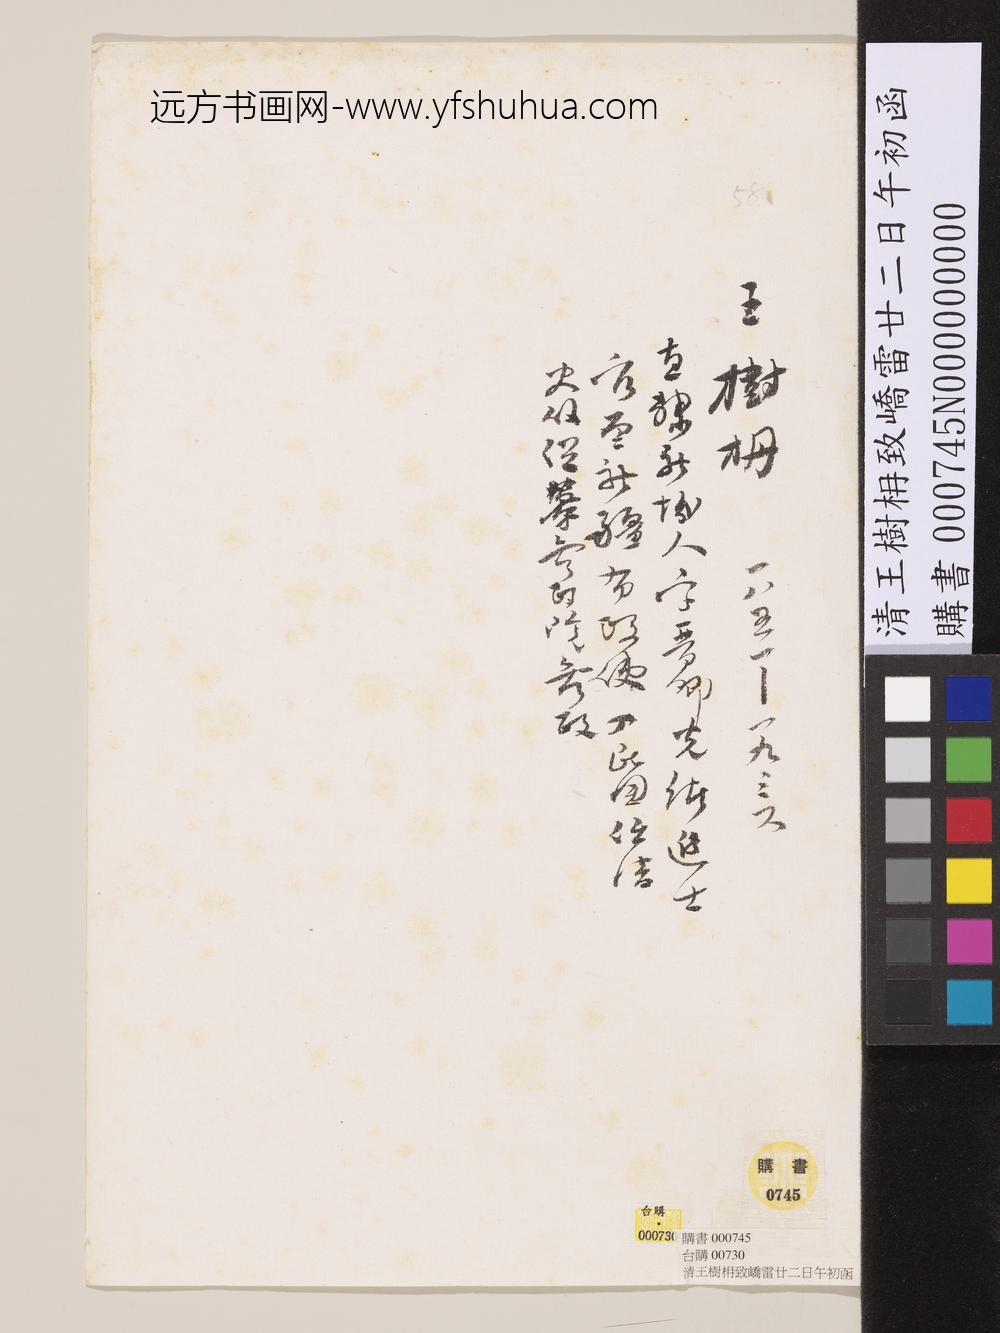 远方书画网-www.yfshuhua.com
58
王樹枏 一八五一—一九三六
直隸新城人字晉卿光緒進士
官至新疆布政使入民國任清
史館總纂參政院參政
清王樹枏致嶠雷廿二日午初函
購書 000745N000000000
購書
0745
台購
000730
購書 000745
台購 00730
清王樹枏致嶠雷廿二日午初函